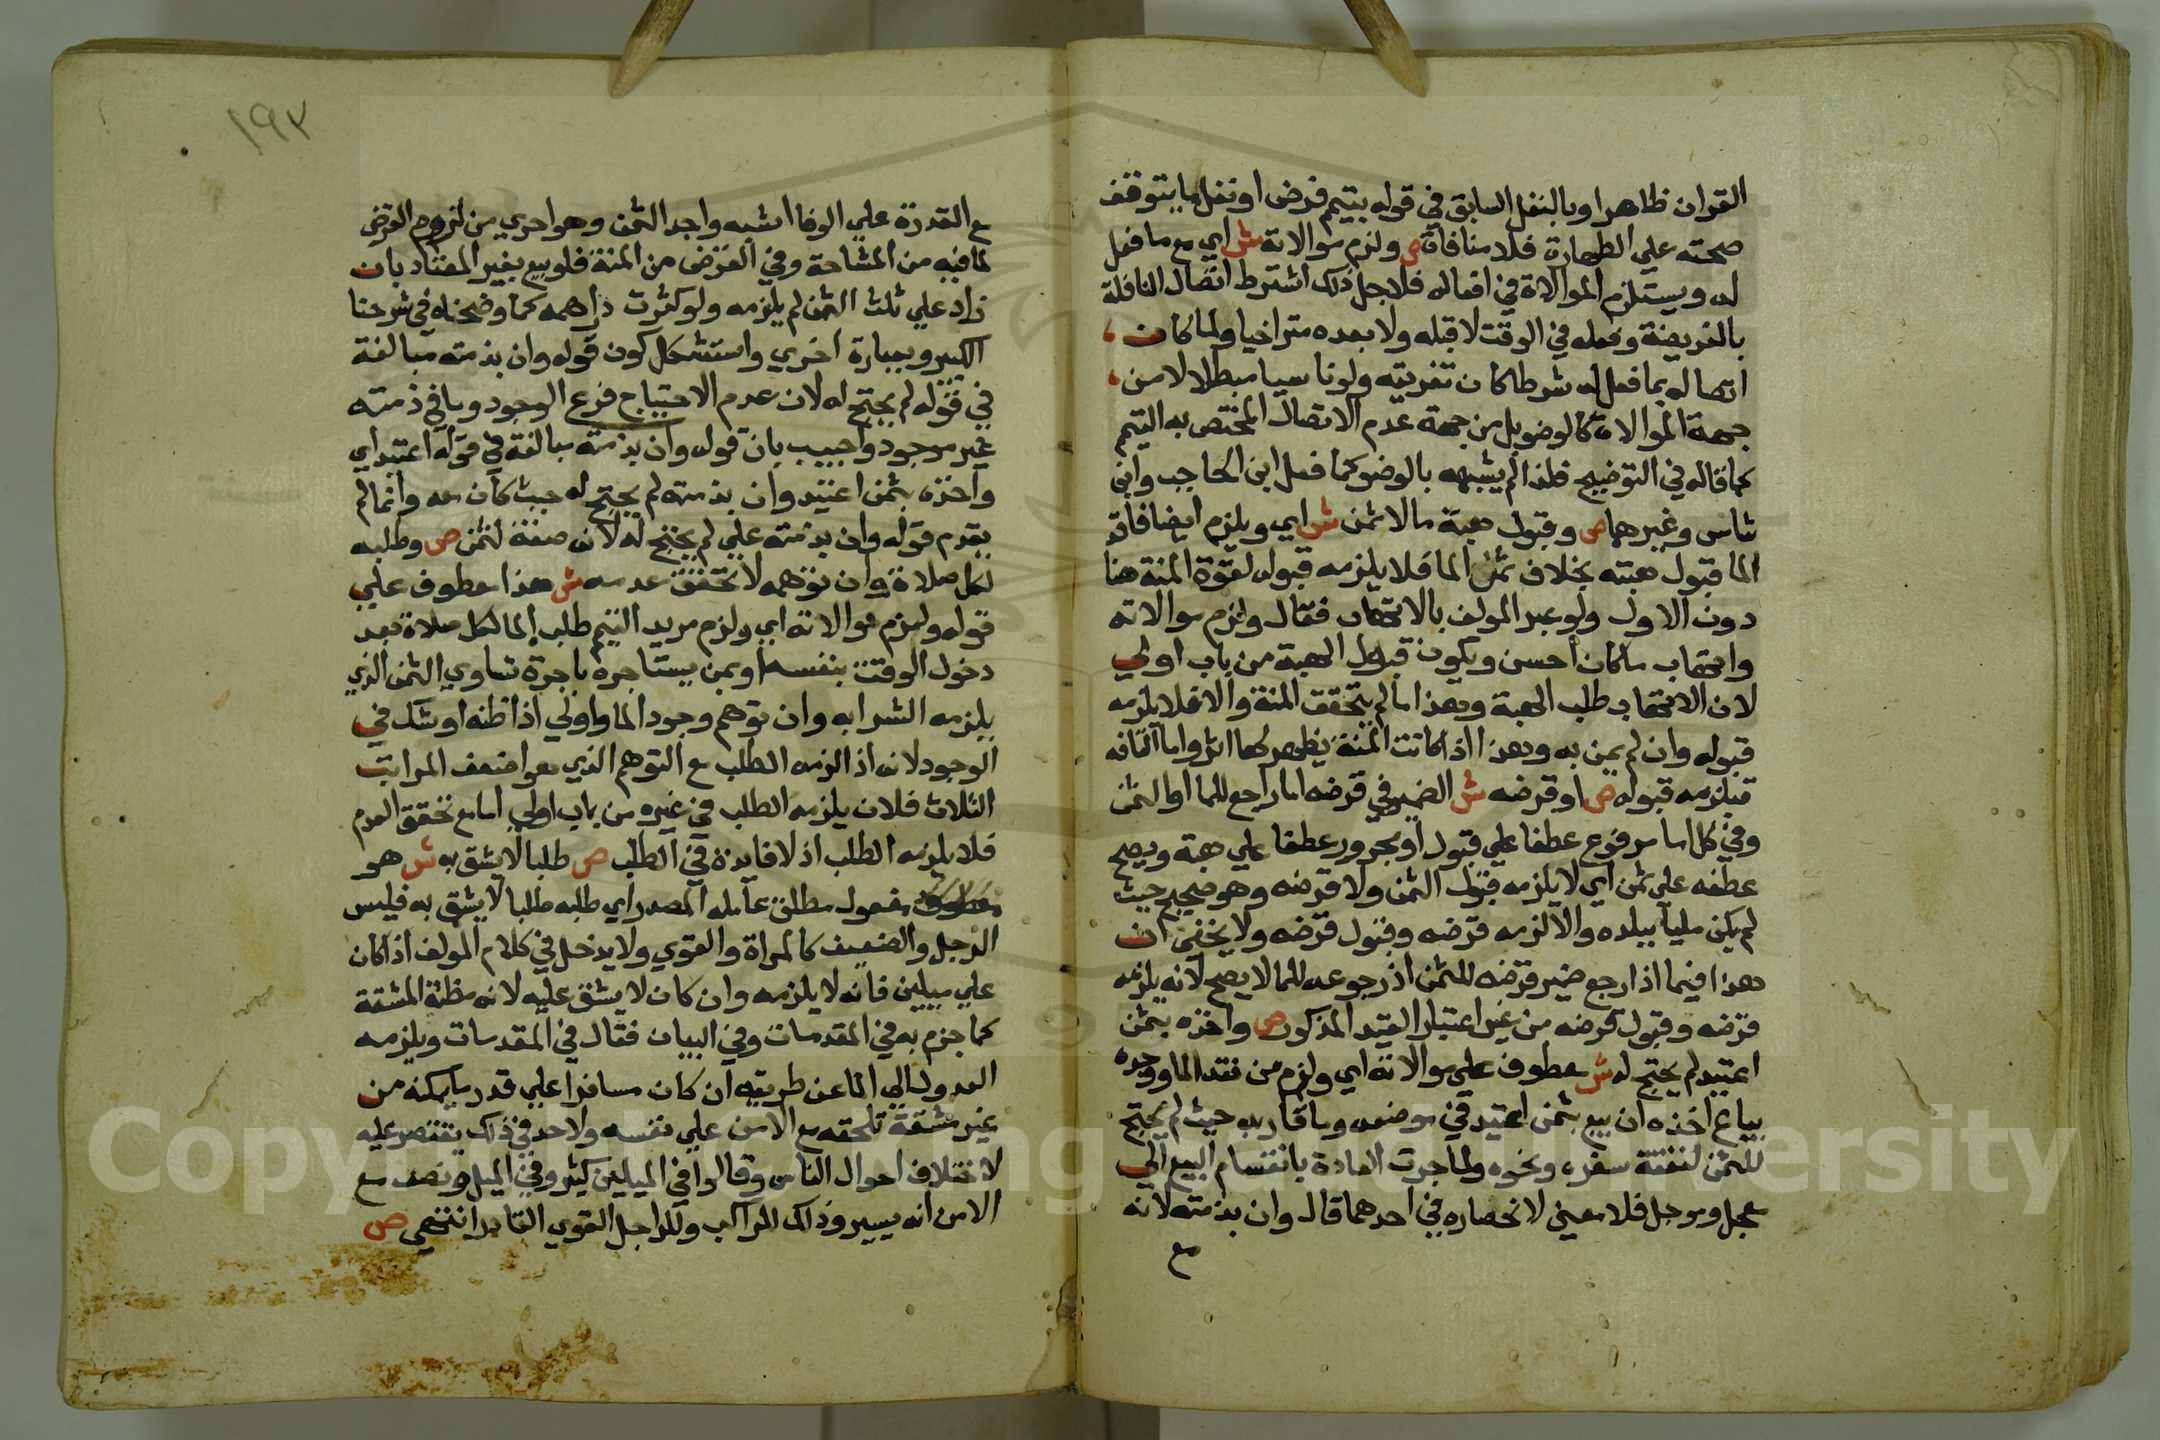 القران ظاهرا وبالنفل السابق في قوله يتيمم فرض او نفل ما يتوقف
صحته علي الطهارة فلا منافاة ص ولزم موالاته ش اي مع ما فعل
له ويستلزم الموالاة في افعاله فلاجل ذلك اشترط اتصال النافلة
بالفريضة وفعله في الوقت لا قبله ولا بعده متراخيا ولما كان
اتصاله بما فعل له شرطا كان تفريقه ولو ناسيا مبطلا لا من
جهة الموالاة كالوضو بل من جهة عدم الاتصال المختص به التيمم
كما قاله في التوضيح فلذا لم يشبهه بالوضو كما فعل ابن الحاجب وابن
شاس وغيرهما ص وقبول هبة ما لا ثمن ش اي ويلزم ايضا فاقد
الما قبول هبته بخلاف ثمن الما فلا يلزمه قبوله لقوة المنة هنا
دون الاول ولو عبر المولف بالاتهاب فقال ولزم موالاته
واتهاب ما كان احسن ويكون قبول الهبة من باب اولي
لان الاتهاب طلب الهبة وهذا ما لم يتحقق المنة والا فلا يلزمه
قبوله وان لم يمن به وهذا اذا كانت المنة يظهر لها اثر واما التافه
فيلزمه قبوله ص او قرضه ش الضمير في قرضه اما راجع للما او الثمن
وفي كل اما مرفوع عطفا علي قبول او مجرور عطفا علي هبة ويصح
عطفه علي ثمن اي لا يلزمه قبول الثمن ولا قرضه وهو صحيح حيث
لم يكن مليا ببلده والا لزمه قرضه وقبول قرضه ولا يخفي ان
هذا فيما اذا رجع ضمير قرضه للثمن اذ رجوعه للما لا يصح لانه يلزمه
قرضه وقبول قرضه من غير اعتبار القيد المذكور ص واخذه بثمن
اعتيد لم يحتج له ش معطوف علي موالاته اي ولزم من فقد الما ووجده
يباع اخذه ان بيع بثمن اعتيد في موضعه وما قاربه حيث لم يحتج
للثمن لنفقة سفره ونحوه ولما جرت العادة بانقسام البيع الي
معجل وموجل فلا معني لانحصاره في احدهما قال وان بذمته لانه
مع
١٩٣
مع القدرة علي الوفا اشبه واجد الثمن وهو احري من لزوم القرض
لما فيه من المشاحة وفي القرض من المنة فلو بيع بغير المعتاد بان
زاد علي ثلث الثمن لم يلزمه ولو كثرت دراهمه كما وضحناه في شرحنا
الكبير وبعبارة اخري واستشكل كون قوله وان بذمته مبالغة
في قوله لم يحتج له لان عدم الاحتياج فرع الوجود وما في ذمته
غير موجود واجيب بان قوله وان بذمته مبالغة في قوله اعتيد اي
واخذه بثمن اعتيد وان بذمته لم يحتج له حيث كان معه وانما لم
يقدم قوله وان بذمته علي لم يحتج له لانه صفة لثمن ص وطلبه
لكل صلاة وان توهمه لا تحقق عدمه ش هذا معطوف علي
قوله ولزم موالاته اي ولزم مريد التيمم طلب الما لكل صلاة بعد
دخول الوقت بنفسه او بمن يستاجره باجرة تساوي الثمن الذي
يلزمه الشرا به وان توهم وجود الما واولي اذا ظنه او شك في
الوجود لانه اذا لزمه الطلب مع التوهم الذي هو اضعف المراتب
الثلاث فلان يلزمه الطلب في غيره من باب اولي اما مع تحقق العدم
فلا يلزمه الطلب اذ لا فايدة في الطلب ص طلبا لا يشق به ش هو
مفعول مطلق عامله المصدر اي طلبه طلبا لا يشق به فليس
الرجل والضعيف كالمراة والقوي ولا يدخل في كلام المولف اذا كان
علي ميلين فانه لا يلزمه وان كان لا يشق عليه لانه مظنة المشقة
كما جزم به في المقدمات وفي البيان فقال في المقدمات ويلزمه
العدول الي الما عن طريقه ان كان مسافرا علي قدر ما يمكنه من
غير مشقة تلحقه مع الامن علي نفسه ولا حد في ذلك يقتصر عليه
لاختلاف احوال الناس وقالوا في الميلين كثير وفي الميل ونصف مع
الامن انه يسير وذلك للراكب وللراجل القوي القادر انتهي ص
Copyright © King Saud University